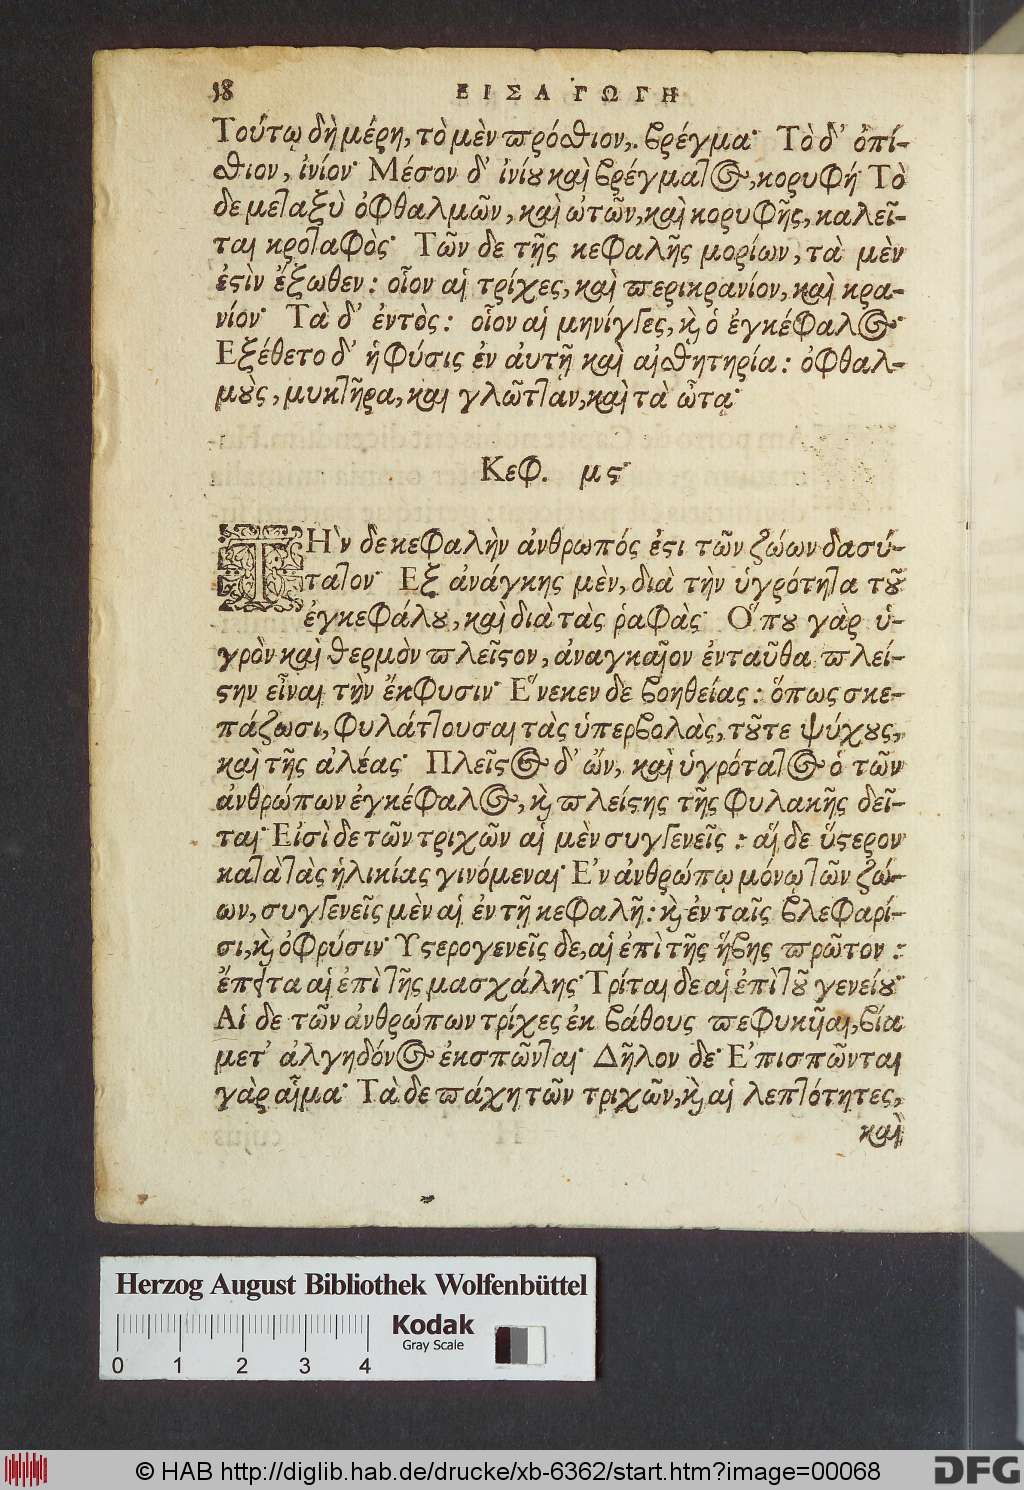 18 ΕΙΣΑΓΩΓΗ
Τούτῳ δὴ μέρη, τὸ μὲν πρόσθιον, βρέγμα· Τὸ δ’ ὀπί-
σθιον, ἰνίον· Μέσον δ’ ἰνίου καὶ βρέγματος, κορυφή· Τὸ
δε μεταξὺ ὀφθαλμῶν, καὶ ὠτῶν, καὶ κορυφῆς, καλεῖ-
ται κροταφὸς· Τῶν δε τῆς κεφαλῆς μορίων, τὰ μὲν
ἐστὶν ἔξωθεν: οἷον αἱ τρίχες, καὶ περικρανίον, καὶ κρα-
νίον· Τὰ δ’ ἐντὸς: οἷον αἱ μηνίγγες, καὶ ὁ ἐγκέφαλος·
Εξέθετο δ’ ἡ φύσις ἐν ἀυτῇ καὶ αἰσθητηρία: ὀφθαλ-
μοὺς, μυκτῆρα, και γλῶτταν, καὶ τὰ ὦτα·
Κεφ. μς·
ΤΗ`ν δε κεφαλὴν ἀνθρωπός ἐστι τῶν ζώων δασύ-
τατον· Εξ ἀνάγκης μὲν, διὰ τὴν ὑγρότητα τοῦ
ἐγκεφάλου, καὶ διὰ τὰς ῥαφὰς· Ο῞που γὰρ ὑ-
γρὸν καὶ θερμὸν πλεῖστον, ἀναγκαῖον ἐνταῦθα πλεί-
στην εἶναι τὴν ἔκφυσιν· Ε῞νεκεν δε βοηθείας: ὅπως σκε-
πάζωσι, φυλάττουσαι τὰς ὑπερβολὰς, τοῦτε ψύχους,
καὶ τῆς ἀλέας· Πλεῖστος δ’ ὢν, καὶ ὑγρότατος ὁ τῶν
ἀνθρώπων ἐγκέφαλος, καὶ πλείστης τῆς φυλακῆς δεῖ-
ται· Εἰσὶ δε τῶν τριχῶν αἱ μὲν συγγενεῖς: αἵ δε ὕστερον
κατὰ τὰς ἡλικίας γινόμεναι· Ε᾿ν ἀνθρώπῳ μόνῳ τῶν ζώ-
ων, συγγενεῖς μὲν αἱ ἐν τῇ κεφαλῇ: καὶ ἐν ταῖς βλεφαρί-
σι, καὶ ὀφρύσιν· Υστερογενεῖς δε, αἱ ἐπὶ τῆς ἥβης πρῶτον:
ἔπειτα αἱ ἐπὶ τῆς μασχάλης· Τρίται δε αἱ ἐπὶ τοῦ γενείου·
Αἱ δε τῶν ἀνθρώπων τρίχες ἐκ βάθους πεφυκῦαι, βία
μετ’ ἀλγηδόνος ἐκσπῶνται· Δῆλον δε· Ε᾿πισπῶνται
γὰρ αἷμα· Τὰ δε πάχη τῶν τριχῶν, καὶ αἱ λεπτότητες,
καὶ
Herzog August Bibliothek Wolfenbüttel
Kodak
Gray Scale
0 1 2 3 4
© HAB http://diglib.hab.de/drucke/xb-6362/start.htm?image=00068
DFG